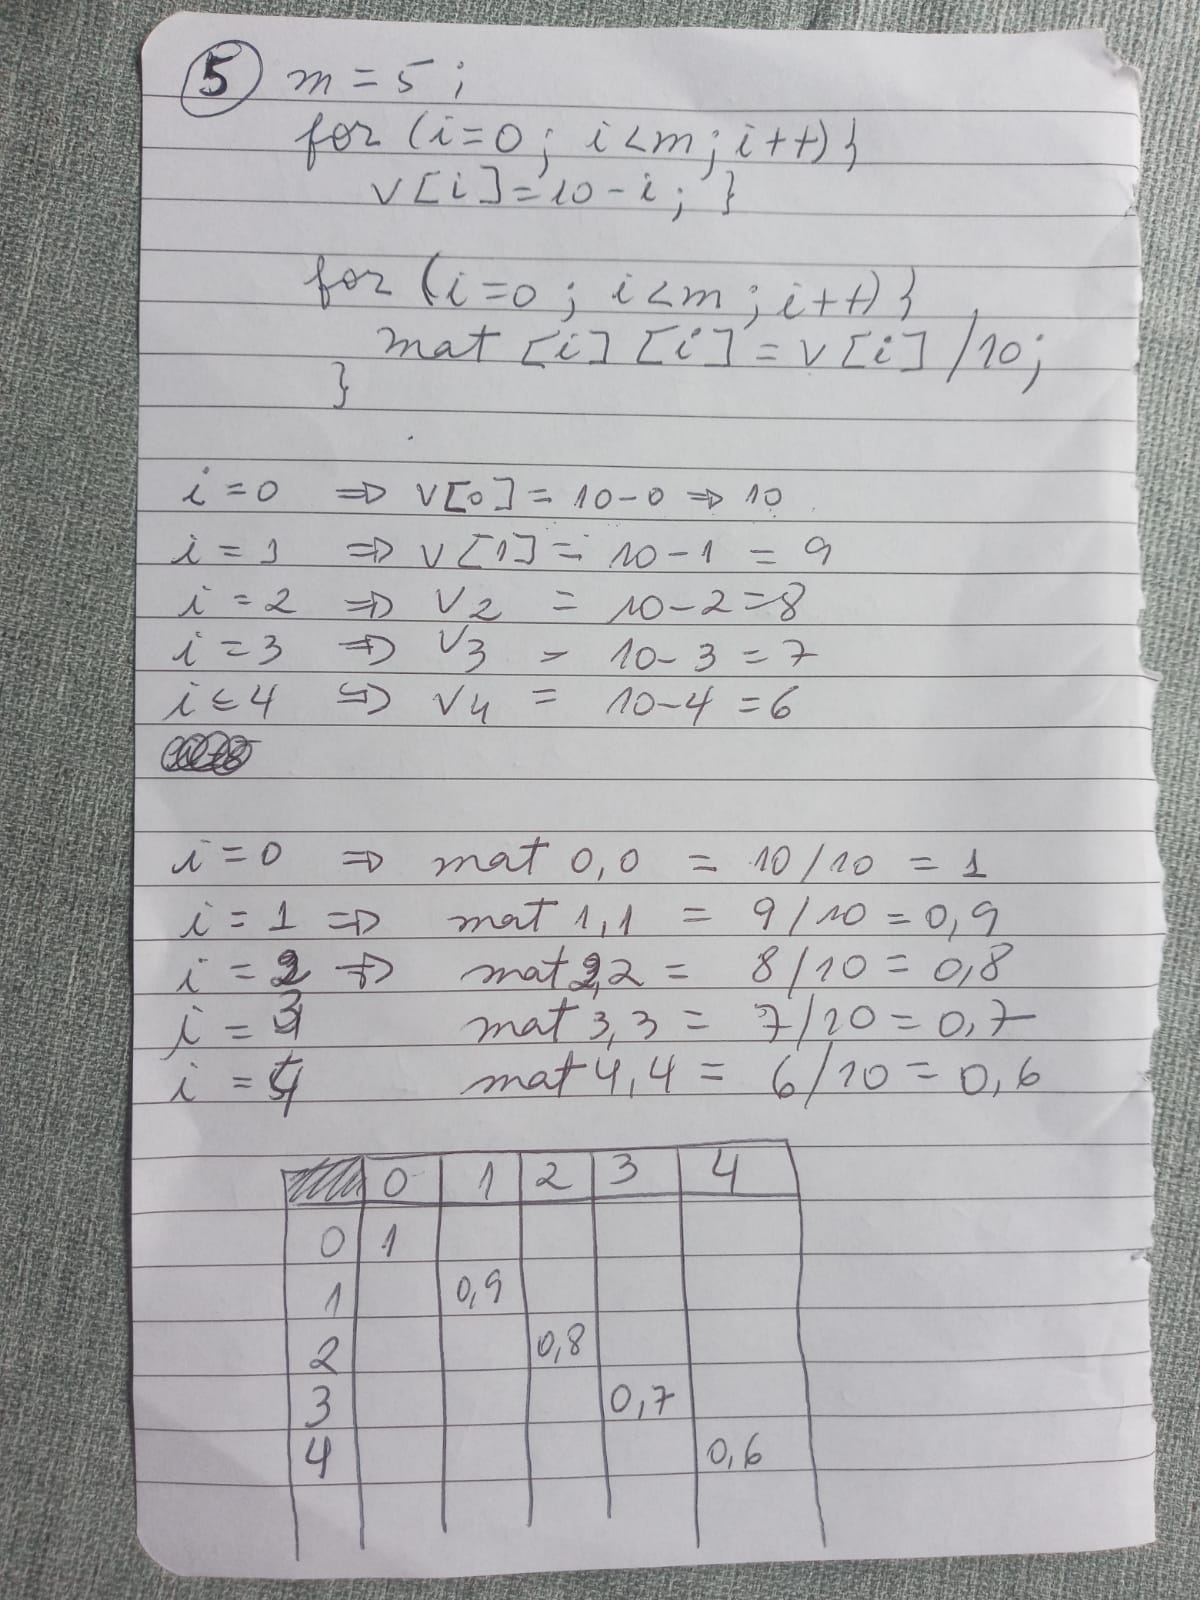 5 m = 5 ;
for (i=0; i<m; i++) }
v[i]=10-i; }
for (i=0; i<m; i++) }
mat [i] [i] = v[i] /10;
}
i=0 ⇒ v[0] = 10-0 ⇒ 10
i = 1 ⇒ v[1] = 10-1 = 9
i = 2 ⇒ v2 = 10-2=8
i = 3 ⇒ v3 = 10-3=7
i = 4 ⇒ v4 = 10-4=6
i=0 ⇒ mat 0,0 = 10/10 = 1
i = 1 ⇒ mat 1,1 = 9/10 = 0,9
i = 2 ⇒ mat 2,2 = 8/10 = 0,8
i = 3 mat 3,3 = 7/10 = 0,7
i = 4 mat 4,4 = 6/10 = 0,6
0 1 2 3 4
0 1
1 0,9
2 0,8
3 0,7
4 0,6